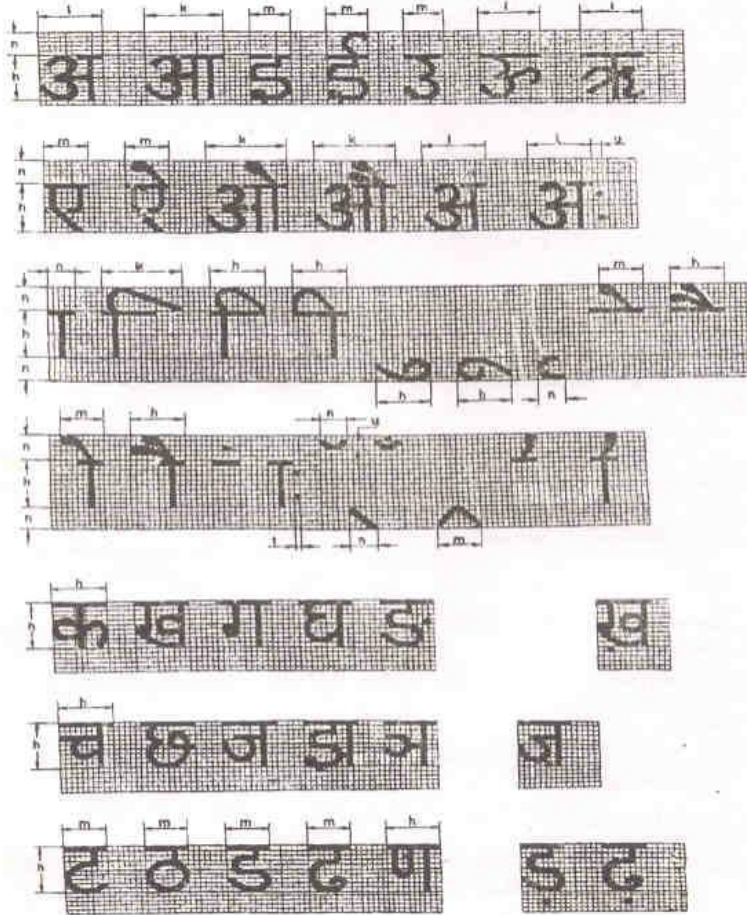 l k m m m l l
n
h
अ आ इ ई उ ऊ ऋ
m m k k l l u
n
h
ए ऐ ओ औ अ अः
n k h h m h
n
h
n
ा ि ी ी ु ू ृ े ै
h h n
m h n u
n
h
n
ो ौ
t n m
h
h
क ख ग घ ङ ख़
h
h
च छ ज झ ञ ज़
m m m m h
h
ट ठ ड ढ ण ड़ ढ़